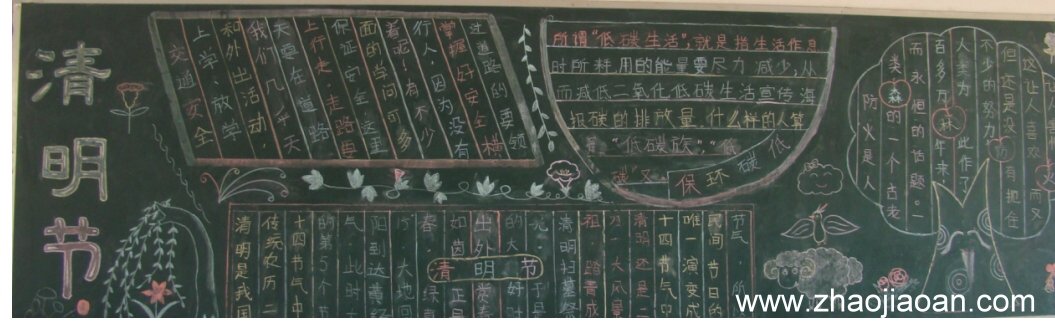 清明节
交通安全
上学、放学
和外出活动,
我们几乎天
天要在道路
上行走。走路要
保证安全,这里
面的学问可多
着呢!有不少
行人,因为没有
掌握好安全横
过道路的要领
所谓“低碳生活”,就是指生活作息
时所耗用的能量要尽力减少,从
而减低二氧化低碳生活宣传海
报碳的排放量。什么样的人算
是“低碳族”“低
碳”又
低碳环保
清明节
清明是我国
传统农历二
十四节气中
的第5个节
气。此时
阳到达黄经
大地回
春
如茵,正是
出外赏春
的大好时
光。于是
清明扫墓祭
祖、踏青成
为一大风景
清明还是二
十四节气中
唯一演变成
民间节日的
节气,所
森林防火
防火是人
类的一个古老
而永恒的话题。一
百多万年来
人类为此作了
不少的努力
但还是没有把它
这让人喜欢而又
www.zhaojiaoan.com